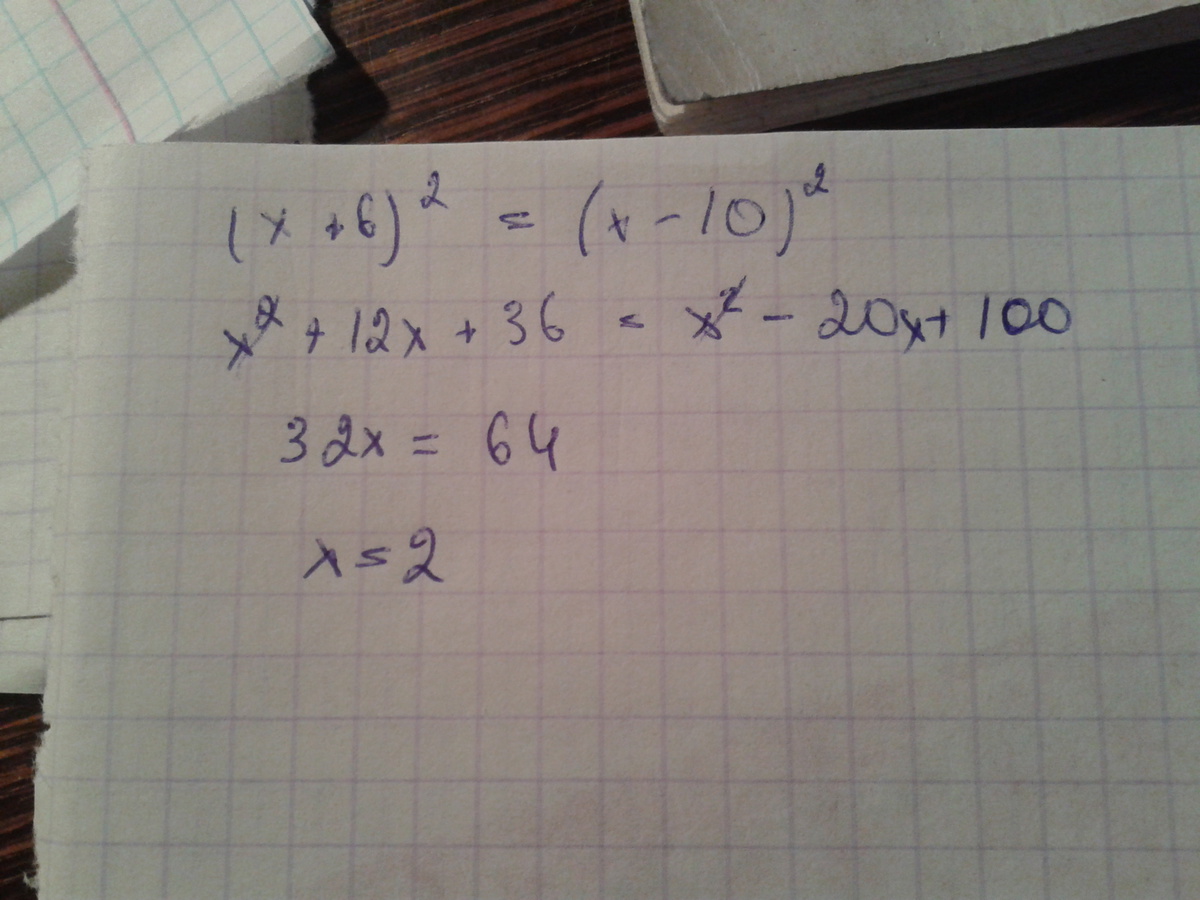 (x + 6)² = (x - 10)²
x² + 12x + 36 = x² - 20x + 100
32x = 64
x = 2